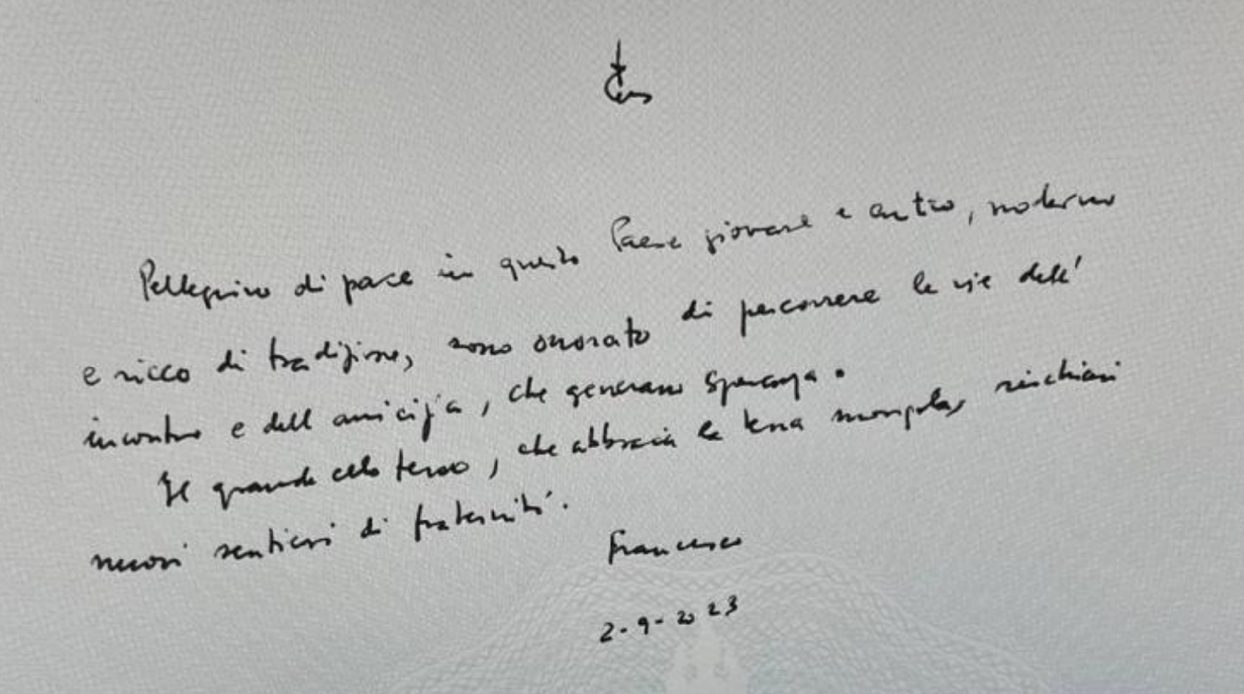 Pellegrino di pace in questo Paese giovane e antico, moderno
e ricco di tradizione, sono onorato di percorrere le vie dell'
incontro e dell'amicizia, che generano speranza.
Il grande cielo terso, che abbraccia la terra mongola, rischiari
nuovi sentieri di fraternità.
Francesco
2-9-2023